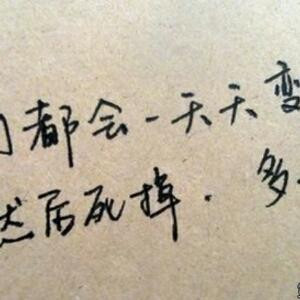 们都会一天天变
然后死掉.多